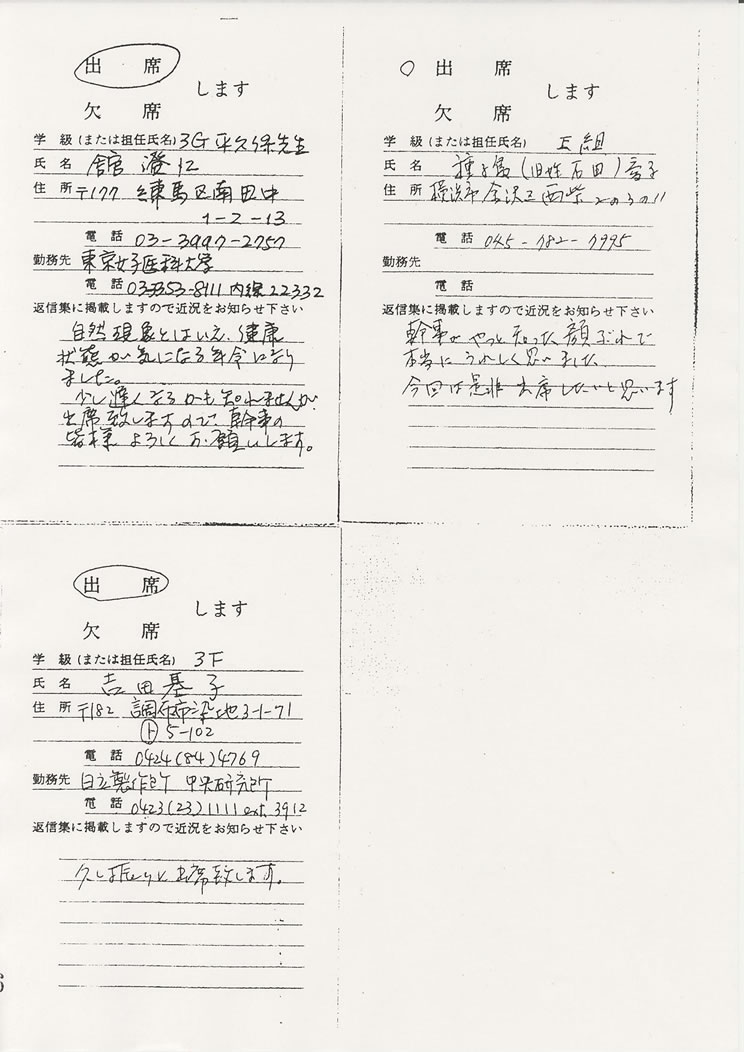 出席
します
欠席
学級(または担任氏名) 3G 平久保先生
氏名 舘 澄江
住所 〒177 練馬区南田中
1-2-13
電話 03-3997-2757
勤務先 東京女子医科大学
電話 03-3353-8111 内線22332
返信集に掲載しますので近況をお知らせ下さい
自然現象とはいえ、健康
状態が気になる年令になり
ました。
少し遅くなるかも知れませんが
出席致しますので、幹事の
皆様よろしくお願いします。
○ 出席
します
欠席
学級(または担任氏名) E組
氏名 (旧姓 石田)
住所 横浜市金沢区西柴
電話 045-782-7995
勤務先
電話
返信集に掲載しますので近況をお知らせ下さい
幹事がやっと知った顔ぶれで
本当にうれしく思いました
今回は是非出席したいと思います
出席
します
欠席
学級(または担任氏名) 3F
氏名 吉田基子
住所 〒182 調布市染地3-1-71
ト5-102
電話 0424(84)4769
勤務先 日立製作所 中央研究所
電話 0423(23)1111 ext. 3912
返信集に掲載しますので近況をお知らせ下さい
久しぶりに出席致します。
6